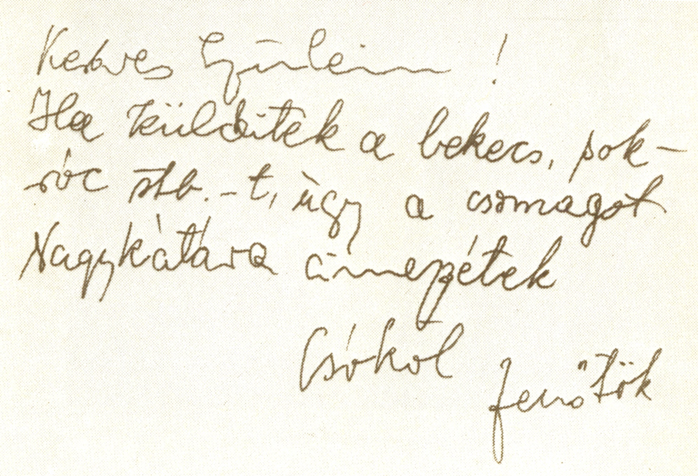 Kedves Szüleim!
Ha külditek a bekecs, pok-
róc stb.-t, úgy a csomagot
Nagykátára címezzétek
Csókol
Jenőtök